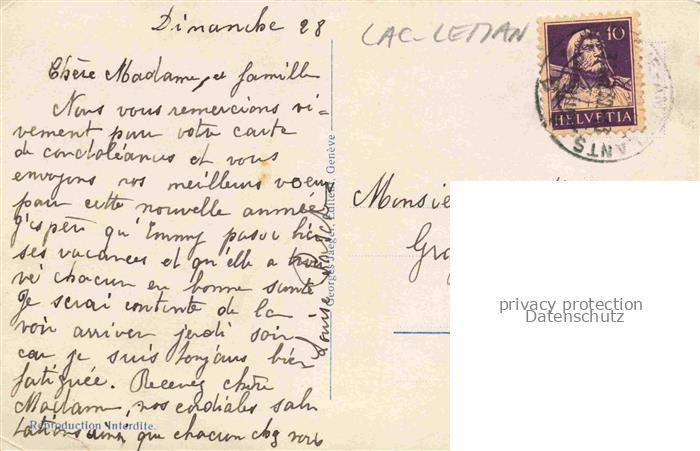 Dimanche 28
LAC-LEMAN
Chère Madame, et famille
Nous vous remercions vi-
vement pour votre carte
de condoléances et vous
envoyons nos meilleurs voeux
pour cette nouvelle année
J'espère qu'Emmy passe bien
ses vacances et qu'elle a trou
vé chacun en bonne santé
Je serai contente de la
voir arriver jeudi soir
car je suis toujours bien
fatiguée. Recevez chère
Madame, nos cordiales salu
tations ainsi que chacun chez vous
Louise
Reproduction Interdite.
Georges Jaeger, Editeur, Genève
10
HELVETIA
Monsieur
privacy protection
Datenschutz